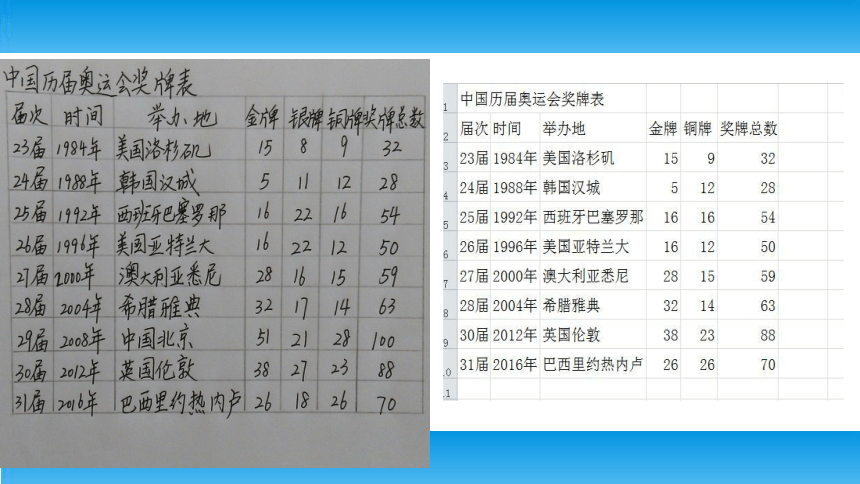 中国历届奥运会奖牌表
届次 时间 举办地 金牌 银牌 铜牌 奖牌总数
23届 1984年 美国洛杉矶 15 8 9 32
24届 1988年 韩国汉城 5 11 12 28
25届 1992年 西班牙巴塞罗那 16 22 16 54
26届 1996年 美国亚特兰大 16 22 12 50
27届 2000年 澳大利亚悉尼 28 16 15 59
28届 2004年 希腊雅典 32 17 14 63
29届 2008年 中国北京 51 21 28 100
30届 2012年 英国伦敦 38 27 23 88
31届 2016年 巴西里约热内卢 26 18 26 70
1 中国历届奥运会奖牌表
2 届次 时间 举办地 金牌 铜牌 奖牌总数
3 23届 1984年 美国洛杉矶 15 9 32
4 24届 1988年 韩国汉城 5 12 28
5 25届 1992年 西班牙巴塞罗那 16 16 54
6 26届 1996年 美国亚特兰大 16 12 50
7 27届 2000年 澳大利亚悉尼 28 15 59
8 28届 2004年 希腊雅典 32 14 63
9 30届 2012年 英国伦敦 38 23 88
10 31届 2016年 巴西里约热内卢 26 26 70
11